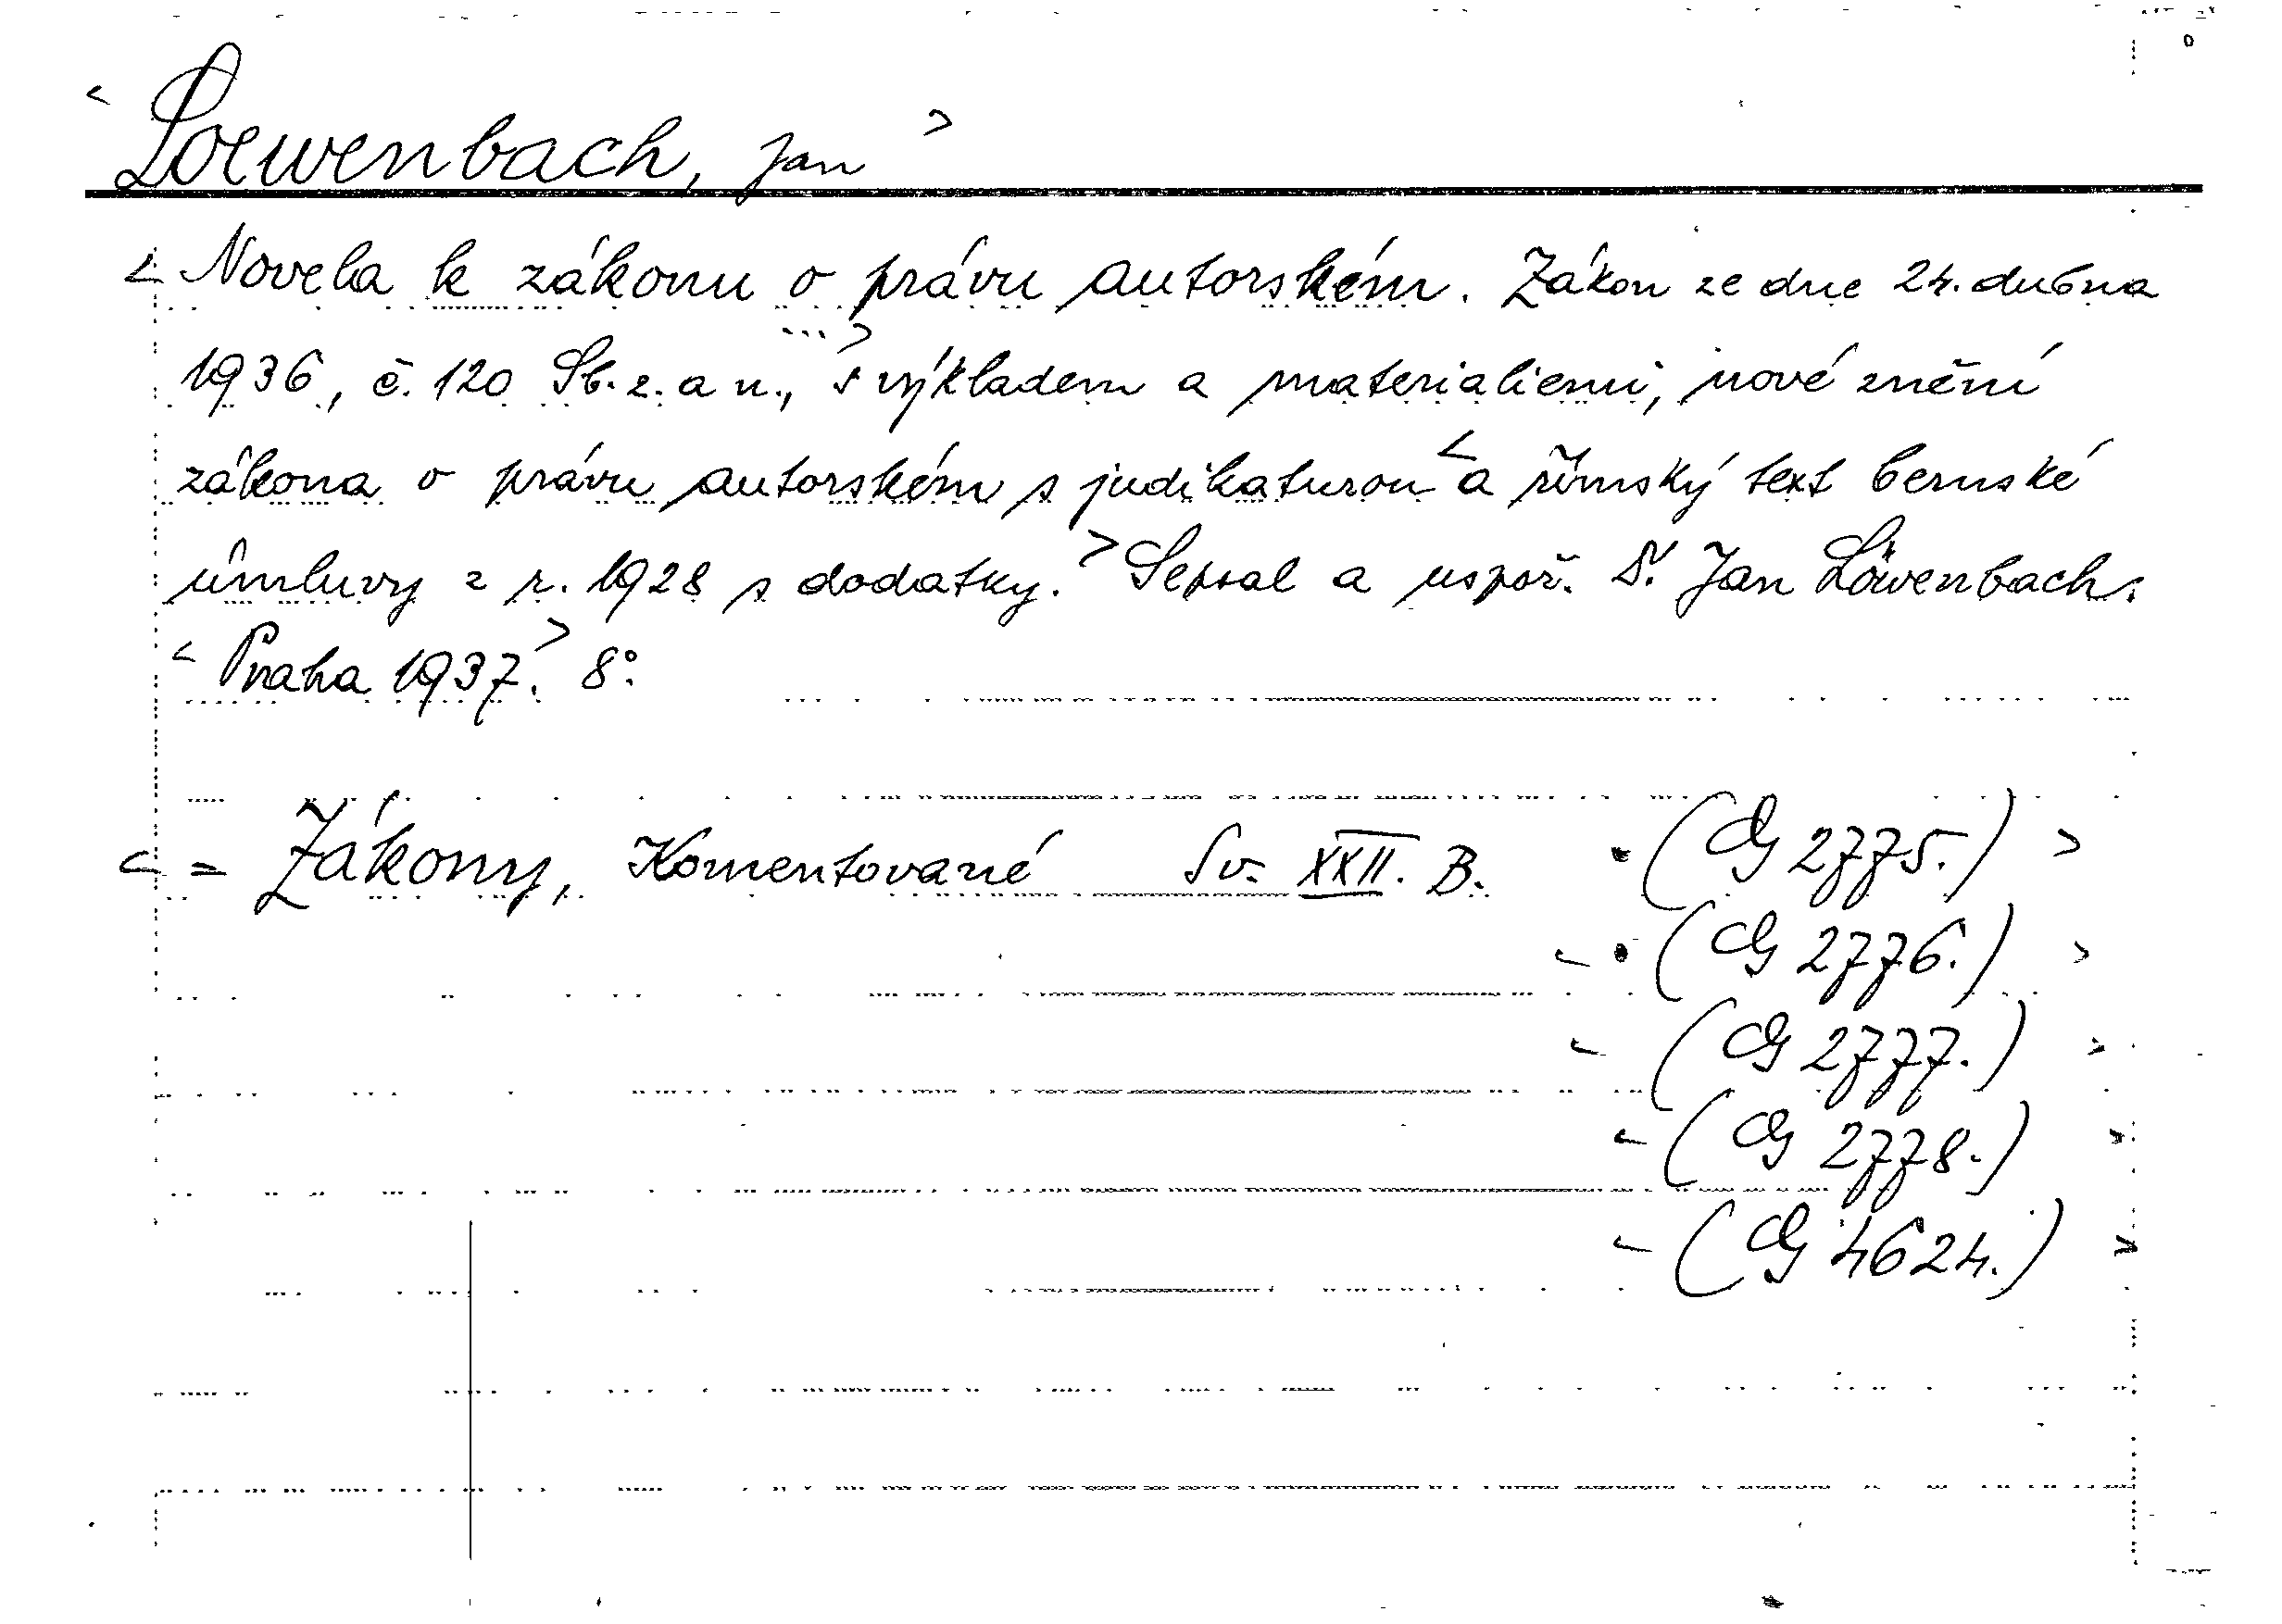 < Loewenbach, Jan >
< Novela k zákonu o právu autorském. Zákon ze dne 24. dubna
1936, č. 120 Sb. z. a n., ...> s výkladem a materialiemi, nové znění
zákona o právu autorském s judikaturou < a římský text bernské
úmluvy z r. 1928 s dodatky. > Sepsal a uspoř. Dr. Jan Löwenbach.
< Praha 1937. > 8°.
< = Zákony, Komentované Sv. XXII. B. (G 2775.) >
< • (G 2776.) >
< (G 2777.) >
< (G 2778.) >
< (G 4624.) >